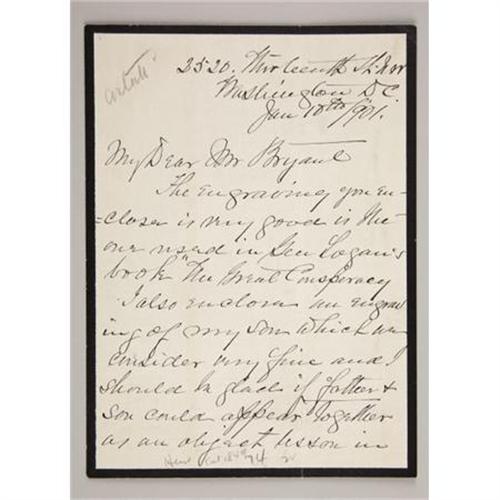 2520. Thirteenth St. N.W
Washington D.C.
Jan 18th/901.
My Dear Mr Bryant
The engraving you en-
-close is very good is the
one used in Gen Logan's
book "The Great Conspiracy
I also enclose an engrav
ing of my son which we
consider very fine and I
should be glad if father &
son could appear together
as an object lesson in